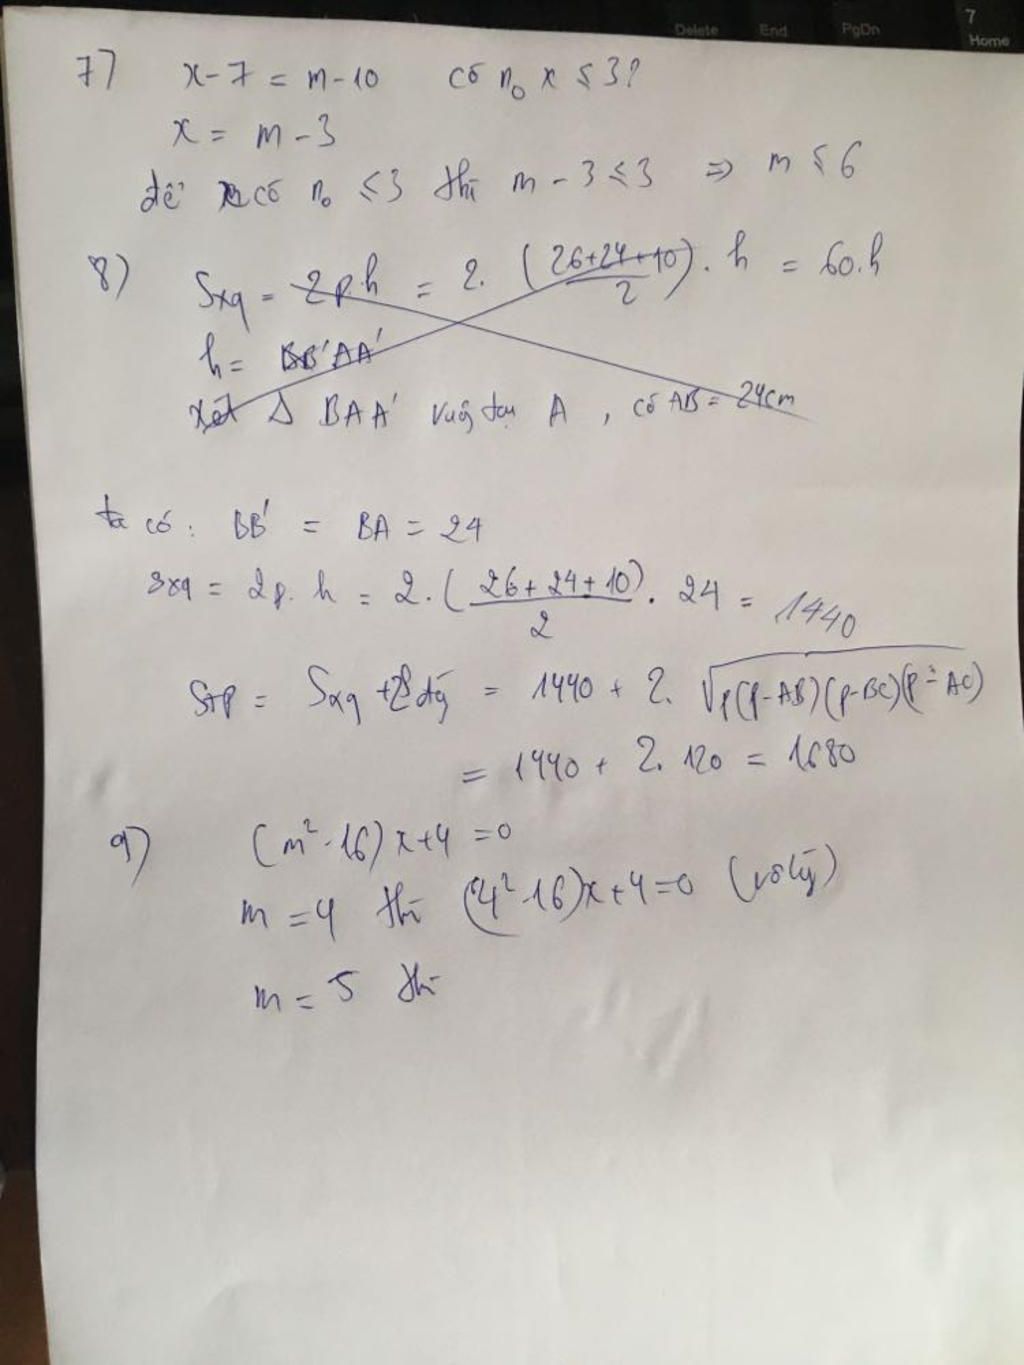 Delete End PgDn 7 Home
7) x - 7 = m - 10 có n₀ x ≤ 3?
x = m - 3
để có n₀ ≤ 3 thì m - 3 ≤ 3 => m ≤ 6
8) Sxq = 2p.h = 2. (26+24+10)/2 . h = 60.h
h = BB' AA'
Xét Δ BAA' vuông tại A , có AB = 24cm
ta có : BB' = BA = 24
Sxq = 2p. h = 2. (26+24+10)/2 . 24 = 1440
STP = Sxq + 2Sđáy = 1440 + 2. √p(p-AB)(p-BC)(p-AC)
= 1440 + 2. 120 = 1680
9) (m² - 16) x + 4 = 0
m = 4 thì (4² - 16)x + 4 = 0 (vô lý)
m = 5 thì